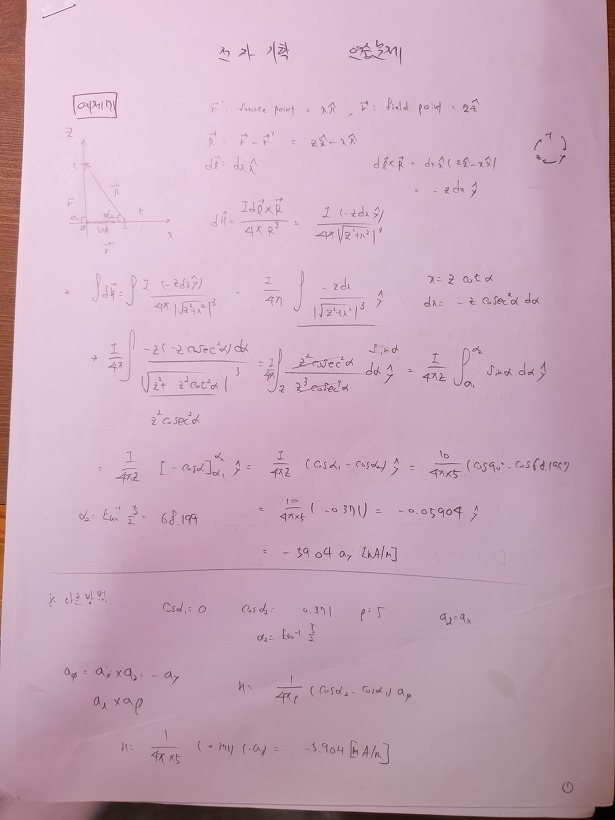 전자기학 연습문제
예제 7.1
r⃗' : source point = xx̂ , r⃗ : field point = zẑ
z
R⃗ = r⃗ - r⃗' = zẑ - xx̂
dl⃗ = dx x̂ dl⃗×R⃗ = dx x̂ (zẑ - xx̂)
= -z dx ŷ
dH⃗ = Idl⃗×R⃗ / 4πR³ = I (-z dx ŷ) / 4π|√z²+x²|³
x
→ ∫dH⃗ = ∫ I (-z dx ŷ) / 4π|√z²+x²|³ = I/4π ∫ -z dx / |√z²+x²|³ ŷ x = z cot α
dx = -z cosec²α dα
→ I/4π ∫ -z(-z cosec²α)dα / |√z²+z²cot²α|³ = I/4π ∫ z²cosec²α / z³cosec³α dα ŷ sinα = I/4πz ∫α₁^α₂ sinα dα ŷ
z²cosec²α
= I/4πz [-cosα]α₁^α₂ ŷ = I/4πz (cosα₁ - cosα₂) ŷ = 10/4π×5 (cos90° - cos68.199)
α₂ = tan⁻¹ 5/2 = 68.199 = 10/4π×5 (-0.371) = -0.05904 ŷ
= -59.04 ay [mA/m]
※ 다른방법
cosα₁ = 0 cosα₂ = 0.371 ρ = 5 al = ax
α₂ = tan⁻¹ 5/2
aφ = ax × az = -ay
al × aρ H = I/4πρ (cosα₂ - cosα₁) aφ
H = 1/4π×5 (0.371) (-ay) = -5.904 [mA/m]
①